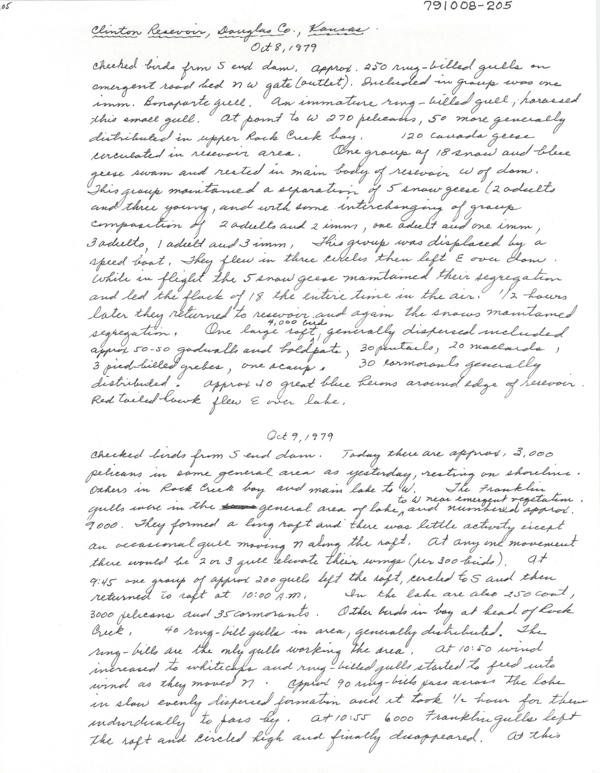 05
791008-205
Clinton Resevoir, Douglas Co., Kansas.
Oct 8, 1979
checked birds from S end dam. Approx. 250 ring-billed gulls on
emergent road bed NW gate (outlet). Included in group was one
imm. Bonaparte gull. An immature ring-billed gull, harassed
this small gull. At point to W 270 pelicans, 50 more generally
distributed in upper Rock Creek bay. 120 Canada geese
circulated in resevoir area. One group of 18 snow and blue
geese swam and rested in main body of resevoir W of dam.
This group maintained a separation of 5 snow geese (2 adults
and three young, and with some interchanging of group
composition of 2 adults and 2 imm, one adult and one imm,
3 adults, 1 adult and 3 imm. This group was displaced by a
speed boat. They flew in three circles then left E over dam.
While in flight the 5 snow geese maintained their segregation
and led the flock of 18 the entire time in the air. 1/2 hours
later they returned to resevoir and again the snows maintained
segregation. One large raft, 4,000 birds generally dispersed included
approx 50-50 gadwalls and baldpate, 30 pintails, 20 mallards,
3 pied-billed grebes, one scaup. 30 cormorants generally
distributed. Approx 40 great blue herons around edge of resevoir.
Red tailed-hawk flew E over lake.
Oct 9, 1979
checked birds from S end dam. Today there are approx. 3,000
pelicans in same general area as yesterday, resting on shoreline.
Others in Rock Creek bay and main lake to W. The Franklin
gulls were in the general area of lake, to W near emergent vegetation. and numbered approx.
9000. They formed a long raft and there was little activity except
an occasional gull moving N along the raft. At any one movement
there would be 2 or 3 gulls elevate their wings (per 300 birds). At
9:45 one group of approx 200 gulls left the raft, circled to S and then
returned to raft at 10:00 A.M. In the lake are also 250 coot,
3000 pelicans and 35 cormorants. Other birds in bay at head of Rock
Creek. 40 ring-bill gulls in area, generally distributed. The
ring-bills are the only gulls working the area. At 10:50 wind
increased to whitecaps and ring-billed gulls started to feed into
wind as they moved N. Approx 90 ring-bills pass across the lake
in slow evenly dispersed formation and it took 1/2 hour for them
individually to pass by. At 10:55 6000 Franklin gulls left
the raft and circled high and finally disappeared. At this